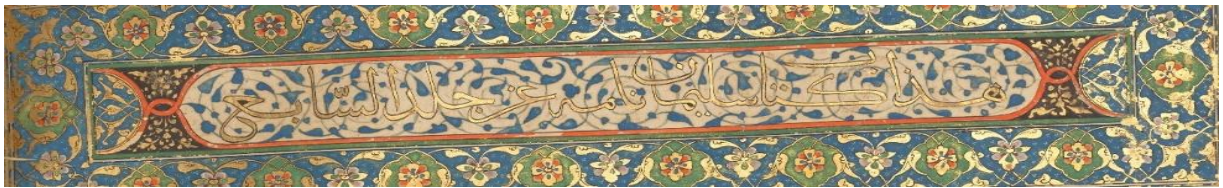 هذا كتاب سليمان نامه عن جلد السابع